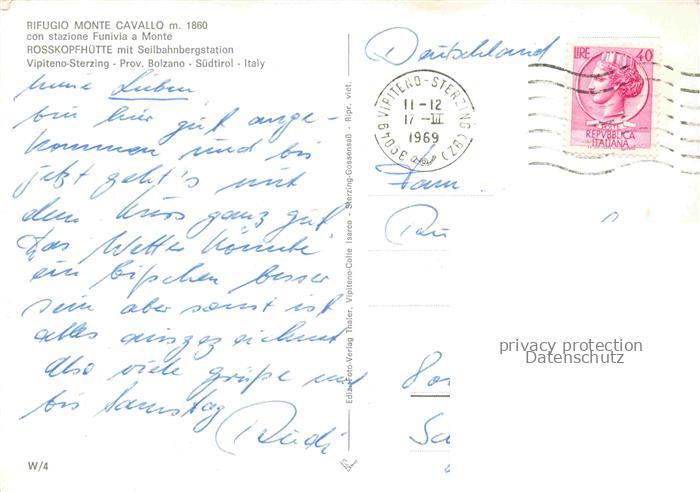 RIFUGIO MONTE CAVALLO m. 1860
con stazione Funivia a Monte
ROSSKOPFHÜTTE mit Seilbahnbergstation
Vipiteno-Sterzing - Prov. Bolzano - Südtirol - Italy
Meine Lieben
bin hier gut ange-
kommen und bis
jetzt geht's mit
dem Kurs ganz gut
Das Wetter könnte
ein bißchen besser
sein aber sonst ist
alles ausgezeichnet
Also viele Grüße und
bis Samstag
Rudi
W/4
Ediz. Foto-Verlag Thaler, Vipiteno-Colle Isarco - Sterzing-Gossensaß - Ripr. viet.
Deutschland
39049 VIPITENO-STERZING (BZ)
11-12
17-III
1969
LIRE 40
POSTE
REPVBBLICA
ITALIANA
Fam
privacy protection
Datenschutz